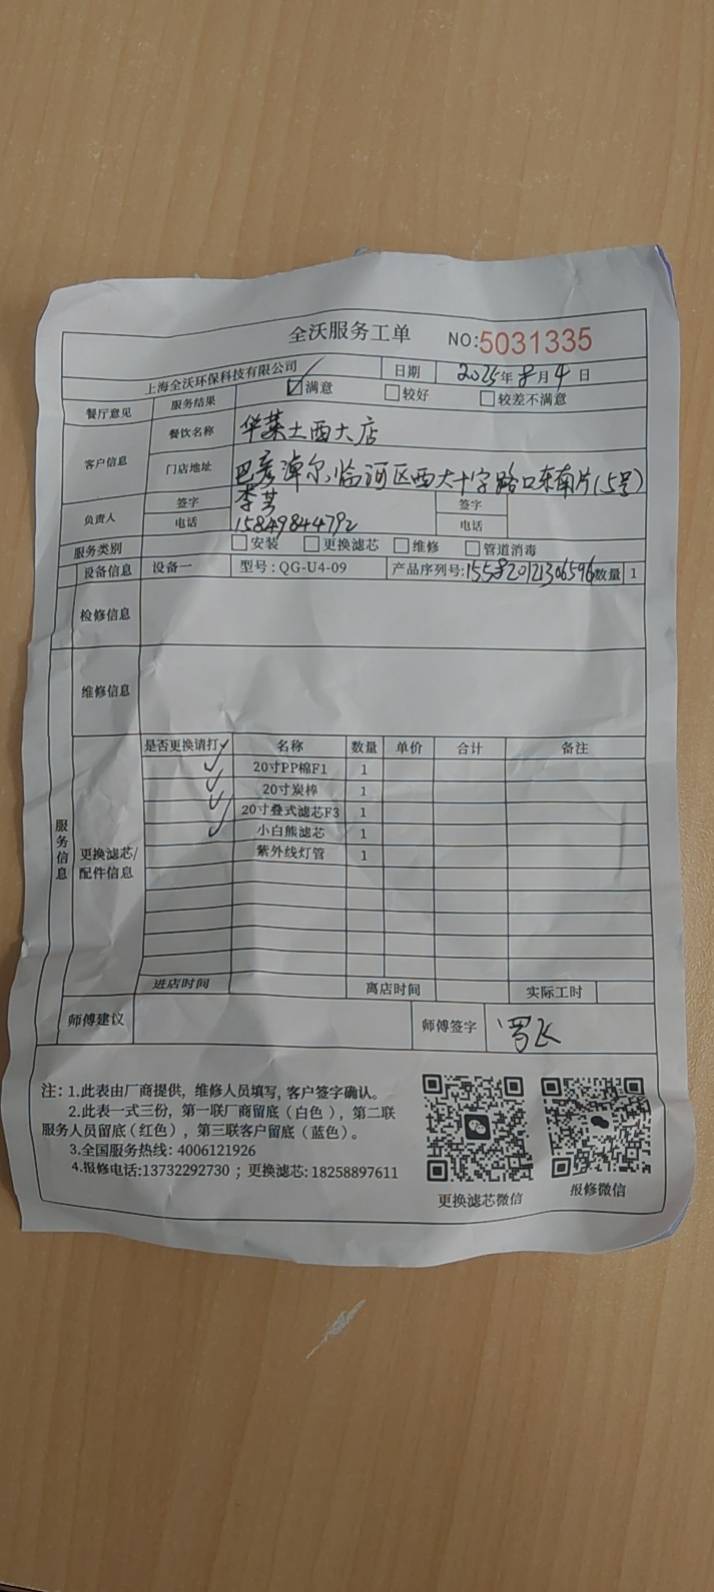 全沃服务工单 NO:5031335
上海全沃环保科技有限公司 日期 2025年8月4日
餐厅意见 服务结果 ☑满意 □较好 □较差不满意
客户信息 餐饮名称 华莱士西大店
门店地址 巴彦淖尔临河区西大十字路口东南片(5号)
负责人 签字 李芳 签字
电话 15849844792 电话
服务类别 □安装 □更换滤芯 □维修 □管道消毒
服务信息
设备信息 设备一 型号:QG-U4-09 产品序列号:155820121306596 数量 1
检修信息
维修信息
更换滤芯/配件信息
是否更换请打✓ 名称 数量 单价 合计 备注
✓ 20寸PP棉F1 1
✓ 20寸炭棒 1
✓ 20寸叠式滤芯F3 1
✓ 小白熊滤芯 1
紫外线灯管 1
进店时间 离店时间 实际工时
师傅建议 师傅签字
注:1.此表由厂商提供,维修人员填写,客户签字确认。
2.此表一式三份,第一联厂商留底(白色),第二联
服务人员留底(红色),第三联客户留底(蓝色)。
3.全国服务热线:4006121926
4.报修电话:13732292730 ;更换滤芯:18258897611
更换滤芯微信 报修微信